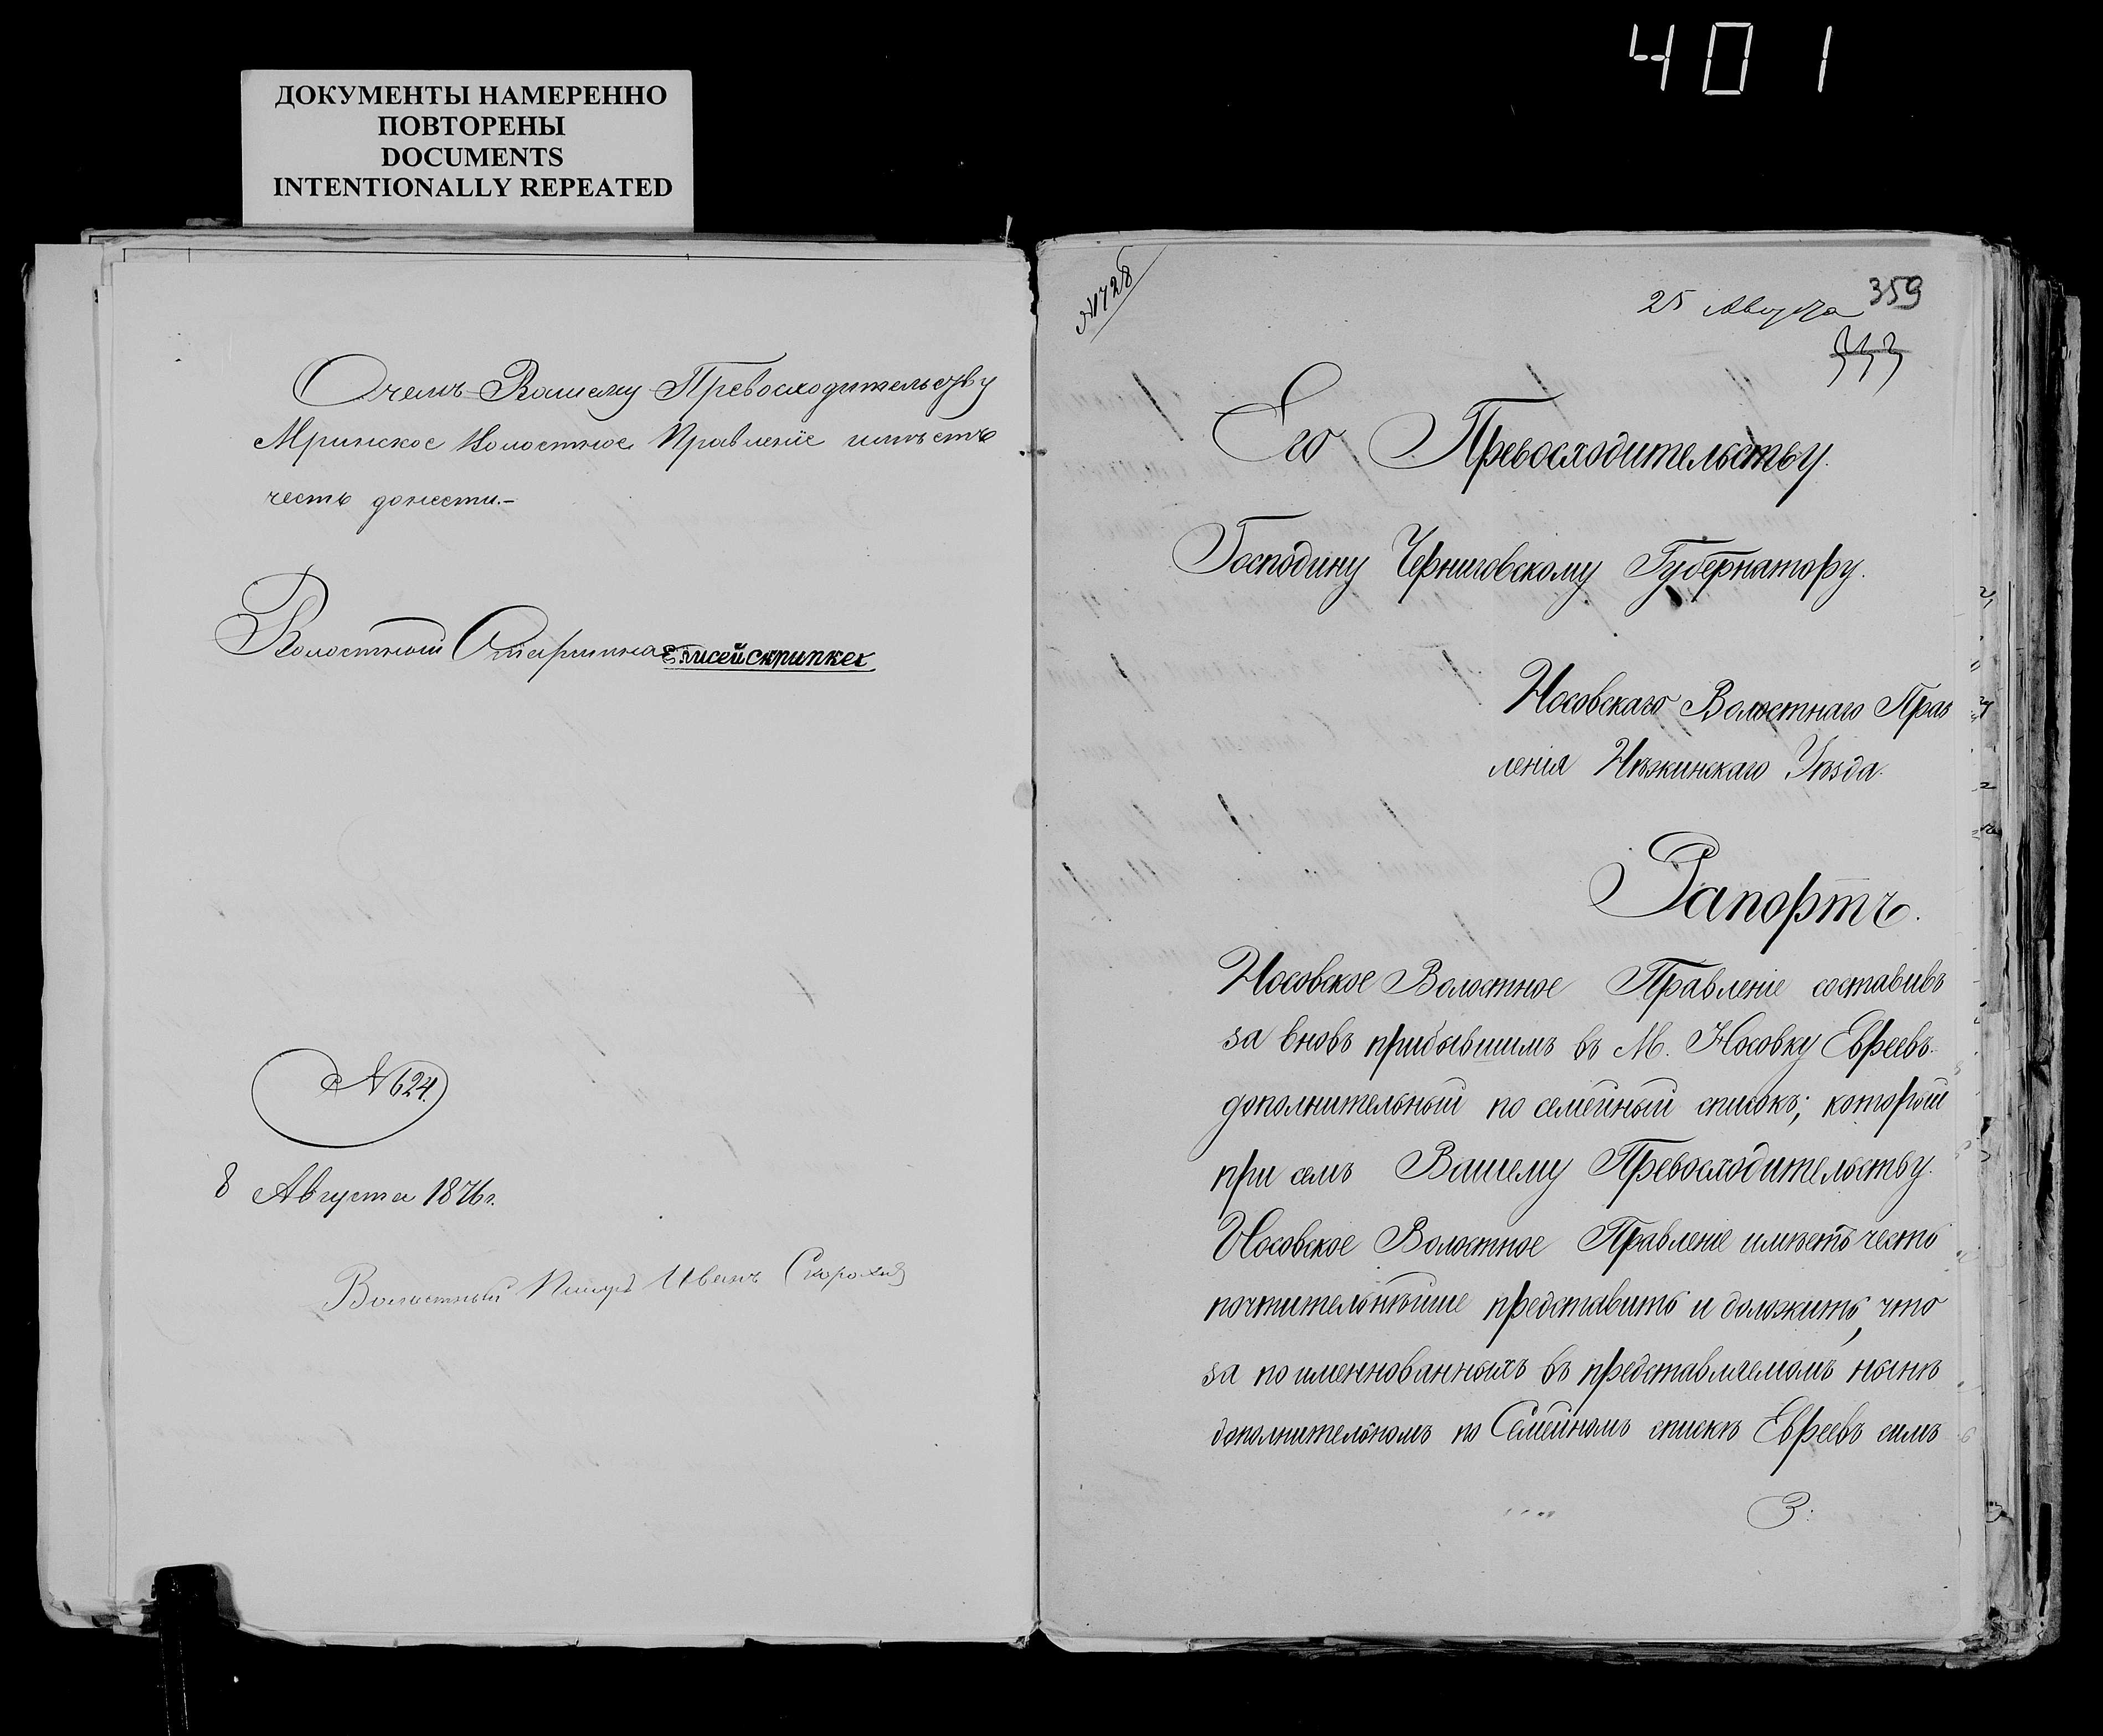 401
ДОКУМЕНТЫ НАМЕРЕННО
ПОВТОРЕНЫ
DOCUMENTS
INTENTIONALLY REPEATED
О чемъ Вашему Превосходительству
Мринское Волостное Правленіе имѣетъ
честь донести.-
Волостный Старшина Елисей Скрипкеи
№ 624.
8 Августа 1876 г.
Волостный Писарь Иванъ
№ 1728
25 Августа
359
Его Превосходительству.
Господину Черниговскому Губернатору.
Носовскаго Волостнаго Прав
ленія Нѣжинскаго Уѣзда.
Рапортъ.
Носовское Волостное Правленіе составивъ
за вновь прибывшимъ въ М. Носовку Евреевъ
дополнительный по семейный списокъ; который
при семъ Вашему Превосходительству.
Носовское Волостное Правленіе имѣетъ честь
почтительнѣйше представить и доложить, что
за поименнованныхъ въ представляемомъ нынѣ
дополнительномъ по Семейномъ спискѣ Евреевъ симъ
З.